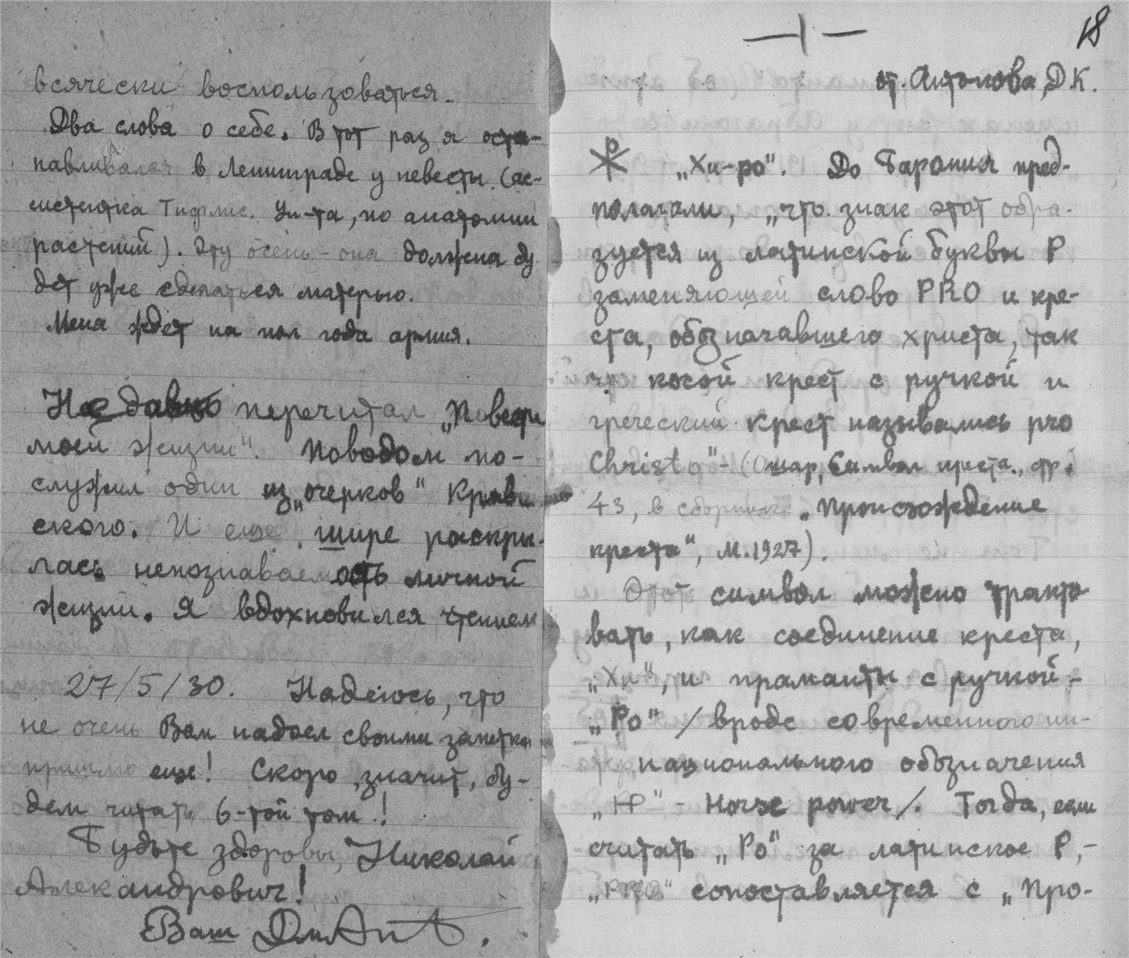 всячески воспользоваться.
Два слова о себе. В тот раз я оста-
навливался в Ленинграде у невесты (ас-
систентка Тифлис. Ун-та, по анатомии
растений). Жду очень - она должна бу
дет уже сделаться матерью.
Меня ждет на пол года армия.
Недавно перечитал „Повести
моей жизни". Поводом по-
служил один из „очерков"
ского. И еще шире раскры-
лась непознаваемость личной
жизни. Я вдохновился чтением
27/5/30. Надеюсь, что
не очень Вам надоел своими
еще! Скоро, значит, бу-
дем читать 6-той том!
Будьте здоровы, Николай
Александрович!
Ваш Дм Ант.
18
— 1 —
от. Антонова, Д К.
☧ „Хи-ро". До Барония пред-
полагали, „что знак этот обра-
зуется из латинской буквы P
заменяющей слово PRO и кре-
ста, обозначавшего христа, так
что косой крест с ручкой и
греческий крест назывались pro
Christo" - ( Символ креста, стр.
43, в сборнике „Происхождение
креста", М. 1927).
Этот символ можно тракто
вать, как соединение креста,
„Хи", и праманты с ручкой -
„Ро" / вроде современного ин-
национального обозначения
„HP" - Horse power /. Тогда, если
считать „Ро" за латинское P, -
„PRO" сопоставляется с „Про-